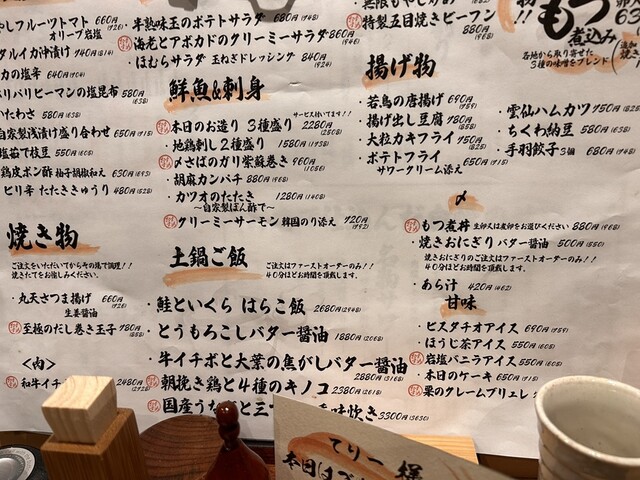 やしフルーツトマト 660円
オリーブ岩塩
タルイカ沖漬け 740円(814)
カの塩辛 640円(704)
バリバリピーマンの塩昆布 580円(638)
いたわさ 580円(638)
自家製浅漬け盛り合わせ 650円(715)
塩茹で枝豆 550円(605)
鶏皮ポン酢 柚子胡椒和え 630円(693)
ピリ辛 たたききゅうり 480円(528)
焼き物
ご注文をいただいてから焼き台で調理!!
焼きたてをお愉しみください。
・丸天さつま揚げ 660円(726)
生姜醤油
至極のだし巻き玉子 780円(858)
<肉>
和牛イチ
2480円
・半熟味玉のポテトサラダ 680円(748)
・海老とアボカドのクリーミーサラダ 860円(946)
・ほむらサラダ 玉ねぎドレッシング 840円(924)
鮮魚&刺身
サービス付いてます!!
本日のお造り 3種盛り 2280円
・地鶏刺し2種盛り 1580円
〆さばのガリ紫蘇巻き 960円(1056)
・胡麻カンパチ 880円(968)
・カツオのたたき 1280円(1408)
~自家製ぽん酢で~
クリーミーサーモン 韓国のり添え 720円(792)
土鍋ご飯
ご注文はファーストオーダーのみ!!
40分ほどお時間を頂戴します。
・鮭といくら はらこ飯 2680円(2948)
・とうもろこしバター醤油 1880円(2068)
・牛イチボと大葉の焦がしバター醤油
2880円(3168)
朝挽き鶏と4種のキノコ 2380円
国産う
味炊き 3300円(3630)
・無限もやし
特製五目焼きビーフン
880円(968)
揚げ物
・若鳥の唐揚げ 690円(759)
・揚げ出し豆腐 780円(858)
・大粒カキフライ 750円(825)
・ポテトフライ 650円(715)
サワークリーム添え
・雲仙ハムカツ 750円(825)
・ちくわ納豆 580円(638)
・手羽餃子3個 680円(748)
もつ
煮込み
各地から取り寄せた
3種の味噌をブレンド
〆
もつ煮丼 生卵又は煮卵をお選びください 880円(968)
・焼きおにぎり バター醤油 500円(550)
焼きおにぎりのご注文はファーストオーダーのみ!!
40分ほどお時間を頂戴します。
・あら汁 420円(462)
甘味
・ピスタチオアイス 690円(759)
・ほうじ茶アイス 550円(605)
岩塩バニラアイス 550円(605)
・本日のケーキ 650円(715)
栗のクレームブリュレ
てりー
本日は